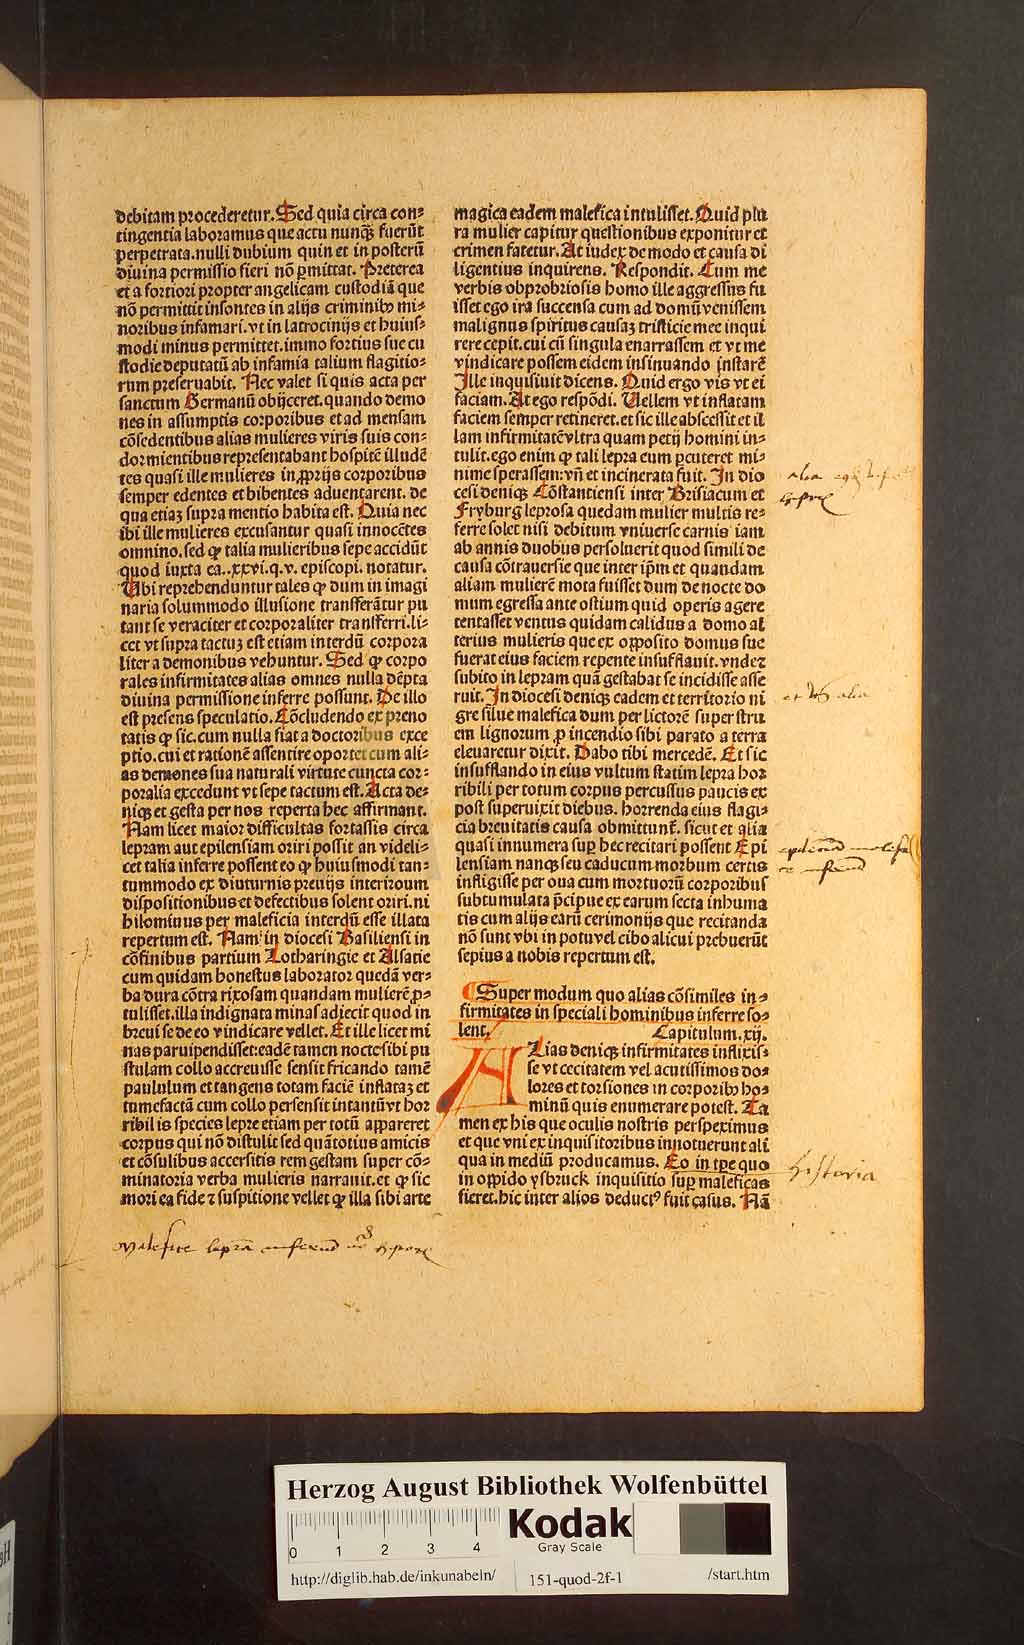 debitam procederetur. Sed quia circa con⸗
tingentia laboramus que actu nunqȝ fuerūt
perpetrata. nulli dubium quin et in posterū
diuina permissio fieri nō ꝑmittat. Preterea
et a fortiori propter angelicam custodiā que
nō permittit insontes in alijs criminibꝫ mi⸗
noribus infamari. vt in latrocinijs et huius⸗
modi minus permittet. immo fortius sue cu
stodie deputatū ab infamia talium flagitio⸗
rum preseruabit. Nec valet si quis acta per
sanctum Germanū obijceret. quando demo
nes in assumptis corporibus et ad mensam
cōsedentibus alias mulieres viris suis con⸗
dormientibus representabant hospitē illudē
tes quasi ille mulieres in ꝓprijs corporibus
semper edentes et bibentes aduentarent. de
qua etiaȝ supra mentio habita est. Quia nec
ibi ille mulieres excusantur quasi innocētes
omnino. sed ꝙ talia mulieribus sepe accidūt
quod iuxta ca. .xxvi.q.v. episcopi. notatur.
Ubi reprehenduntur tales ꝙ dum in imagi
naria solummodo illusione transferātur pu
tant se veraciter et corporaliter transferri. li⸗
cet vt supra tactuȝ est etiam interdū corpora
liter a demonibus vehuntur. Sed ꝙ corpo
rales infirmitates alias omnes nulla dēpta
diuina permissione inferre possunt. De illo
est presens speculatio. Cōcludendo ex preno
tatis ꝙ sic. cum nulla fiat a doctoribus exce
ptio. cui et rationē assentire oportet cum ali⸗
as demones sua naturali virtute cuncta cor⸗
poralia excedunt vt sepe tactum est. Acta de⸗
niqȝ et gesta per nos reperta hec affirmant.
Nam licet maior difficultas fortassis circa
lepram aut epilensiam oriri possit an videli⸗
cet talia inferre possent eo ꝙ huiusmodi tan⸗
tummodo ex diuturnis preuijs interiorum
dispositionibus et defectibus solent oriri. ni
hilominus per maleficia interdū esse illata
repertum est. Nam in diocesi Basiliensi in
cōfinibus partium Lotharingie et Alsatie
cum quidam honestus laborator quedā ver⸗
ba dura cōtra rixosam quandam mulierē ꝓ⸗
tulisset. illa indignata minas adjecit quod in
breui se de eo vindicare vellet. Et ille licet mi
nas paruipendisset: eadē tamen nocte sibi pu
stulam collo accreuisse sensit fricando tamē
paululum et tangens totam faciē inflataȝ et
tumefactā cum collo persensit intantū vt hor
ribilis species lepre etiam per totū appareret
corpus qui nō distulit sed quātotius amicis
et cōsulibus accersitis rem gestam super cō⸗
minatoria verba mulieris narrauit. et ꝙ sic
mori ea fide ⁊ suspitione vellet ꝙ illa sibi arte
magica eadem malefica intulisset. Quid plu
ra mulier capitur questionibus exponitur et
crimen fatetur. At iudex de modo et causa di
ligentius inquirens. Respondit. Cum me
verbis obprobriosis homo ille aggressus fu
isset ego ira succensa cum ad domū venissem
malignus spiritus causaȝ tristicie mee inqui
rere cepit. cui cū singula enarrassem et vt me
vindicare possem eidem insinuando instarē
Ille inquisiuit dicens. Quid ergo vis vt ei
faciam. At ego respōdi. Vellem vt inflatam
faciem semper retineret. et sic ille abscessit et il
lam infirmitatē vltra quam petij homini in⸗
tulit. ego enim ꝙ tali lepra eum ꝑcuteret mi⸗
nime sperassem: vn̄ et incinerata fuit. In dio
cesi deniqȝ Cōstantiensi inter Brisiacum et
Fryburg leprosa quedam mulier multis re⸗
ferre solet nisi debitum vniuerse carnis iam
ab annis duobus persoluerit quod simili de
causa cōtrauersie que inter ip̄m et quandam
aliam mulierē mota fuisset dum de nocte do
mum egressa ante ostium quid operis agere
tentasset ventus quidam calidus a domo al
terius mulieris que ex opposito domus sue
fuerat eius faciem repente insufflauit. vnde⁊
subito in lepram quā gestabat se incidisse asse
ruit. In diocesi deniqȝ eadem et territorio ni
gre silue malefica dum per lictorē super stru
em lignorum ꝓ incendio sibi parato a terra
eleuaretur dixit. Dabo tibi mercedē. Et sic
insufflando in eius vultum statim lepra hor
ribili per totum corpus percussus paucis ex
post superuixit diebus. horrenda eius flagi⸗
cia breuitatis causa obmittunt̄. sicut et alia
quasi innumera suꝑ hec recitari possent Epi
lensiam nanqȝ seu caducum morbum certis
infligisse per oua cum mortuorū corporibus
subtumulata p̄cipue ex earum secta inhuma
tis cum alijs earū cerimonijs que recitanda
nō sunt vbi in potu vel cibo alicui prebuerūt
sepius a nobis repertum est.
Super modum quo alias cōsimiles in⸗
firmitates in speciali hominibus inferre so⸗
lent. Capitulum. xij.
ALias deniqȝ infirmitates inflixis⸗
se vt cecitatem vel acutissimos do⸗
lores et torsiones in corporibꝫ ho⸗
minū quis enumerare potest. Ta
men ex his que oculis nostris perspeximus
et que vni ex inquisitoribus innotuerunt ali
qua in mediū producamus. Eo in tꝑe quo
in oppido ysbruck inquisitio suꝑ maleficas
fieret. hic inter alios deductꝰ fuit casus. Nā
et alia
historia
Herzog August Bibliothek Wolfenbüttel
0 1 2 3 4
Kodak
Gray Scale
http://diglib.hab.de/inkunabeln/ 151-quod-2f-1 /start.htm